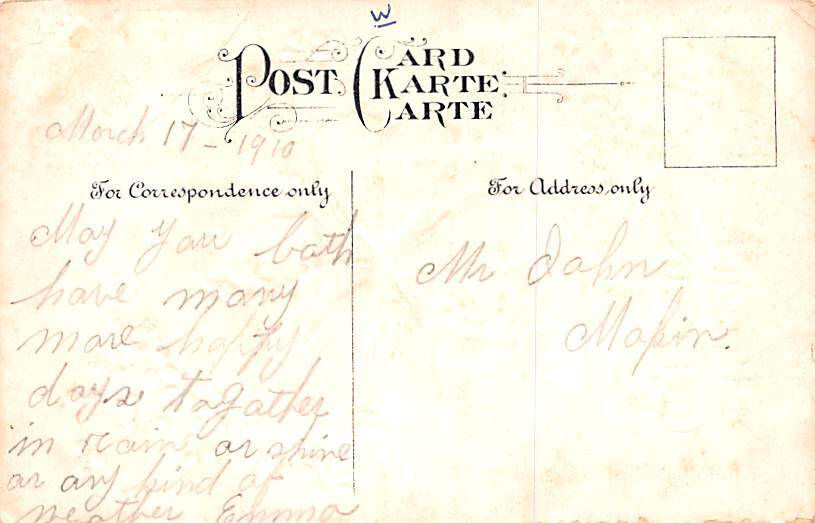 W
POST CARD
KARTE
CARTE
March 17 - 1910
For Correspondence only
For Address only
May you both
have many
more happy
days togather
in rain or shine
or any kind of
weather Emma
Mr John
Makin.